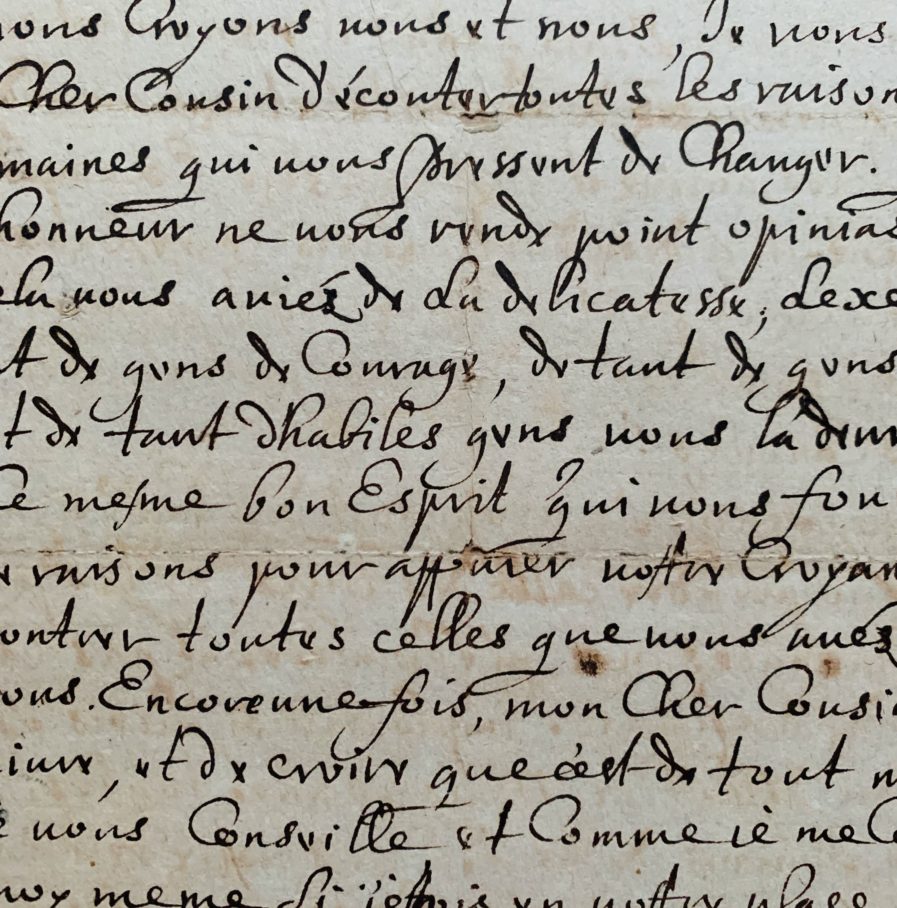 vons Croyons vous et nous, Je vous
Cher Cousin d'écouter toutes les raison
maines qui vous pressent de Changer.
honneur ne vous rende point opinias
vous aviéz de La delicatesse, Lexe
t de gens de Courage, de tant de gens
t de tant dhabiles gens vous la
Ce mesme bon Esprit qui vous fou
raisons pour appuier vostre Croyan
ontrer toutes celles que vous avés
ous. Encore une fois, mon Cher Cousi
ivre, et de croire que c'est de tout m
vous Conseille et Comme ie me Co
moy meme Si i'estois en vostre place